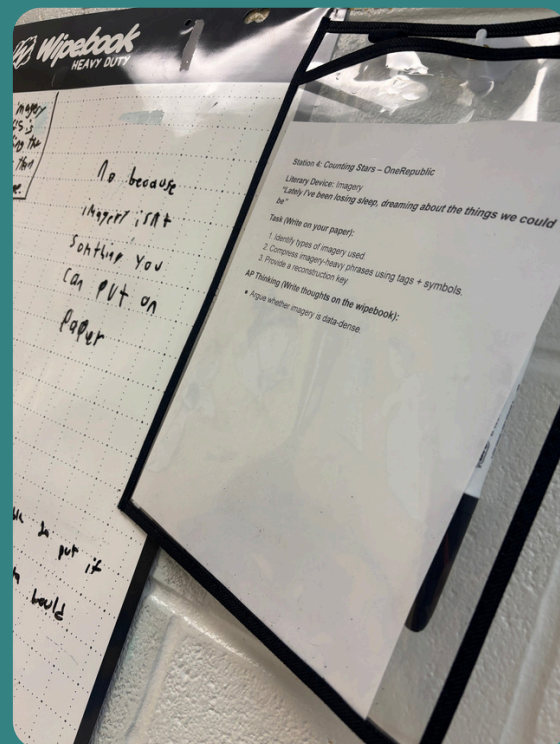 Wipebook
HEAVY DUTY
imagery
is
the
than
No because
imagery isnt
somthing You
can put on
Paper
put it
would
Station 4: Counting Stars – OneRepublic
Literary Device: Imagery
"Lately I've been losing sleep, dreaming about the things we could
be"
Task (Write on your paper):
1. Identify types of imagery used.
2. Compress imagery-heavy phrases using tags + symbols.
3. Provide a reconstruction key.
AP Thinking (Write thoughts on the wipebook):
• Argue whether imagery is data-dense.